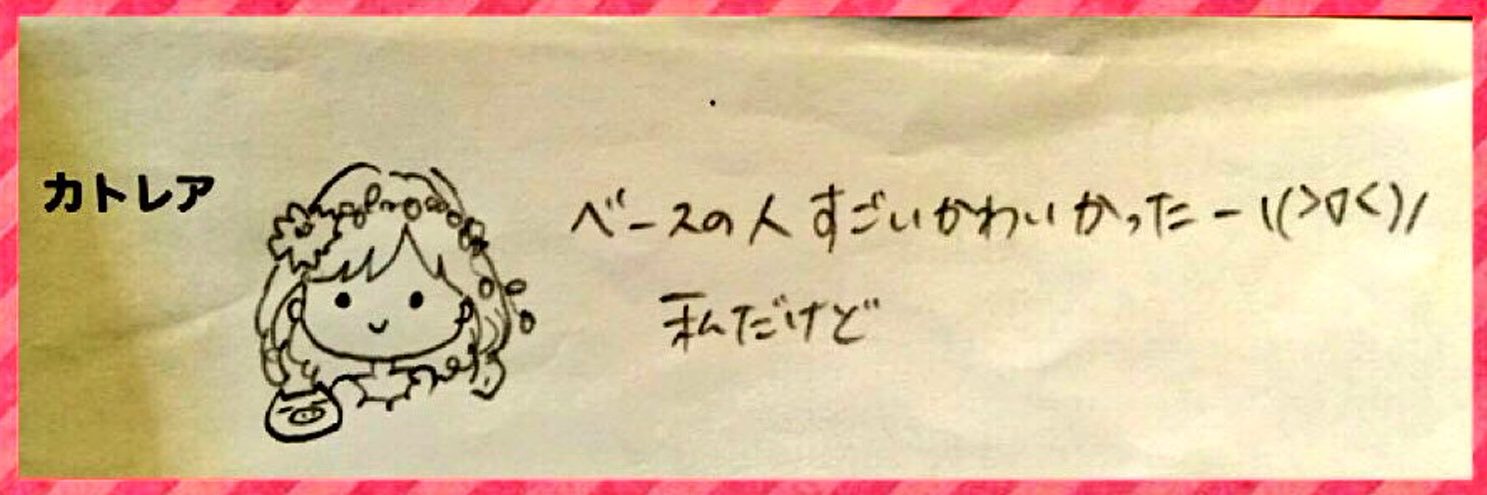 カトレア
ベースの人すごいかわいかったー\(>▽<)/
私だけど